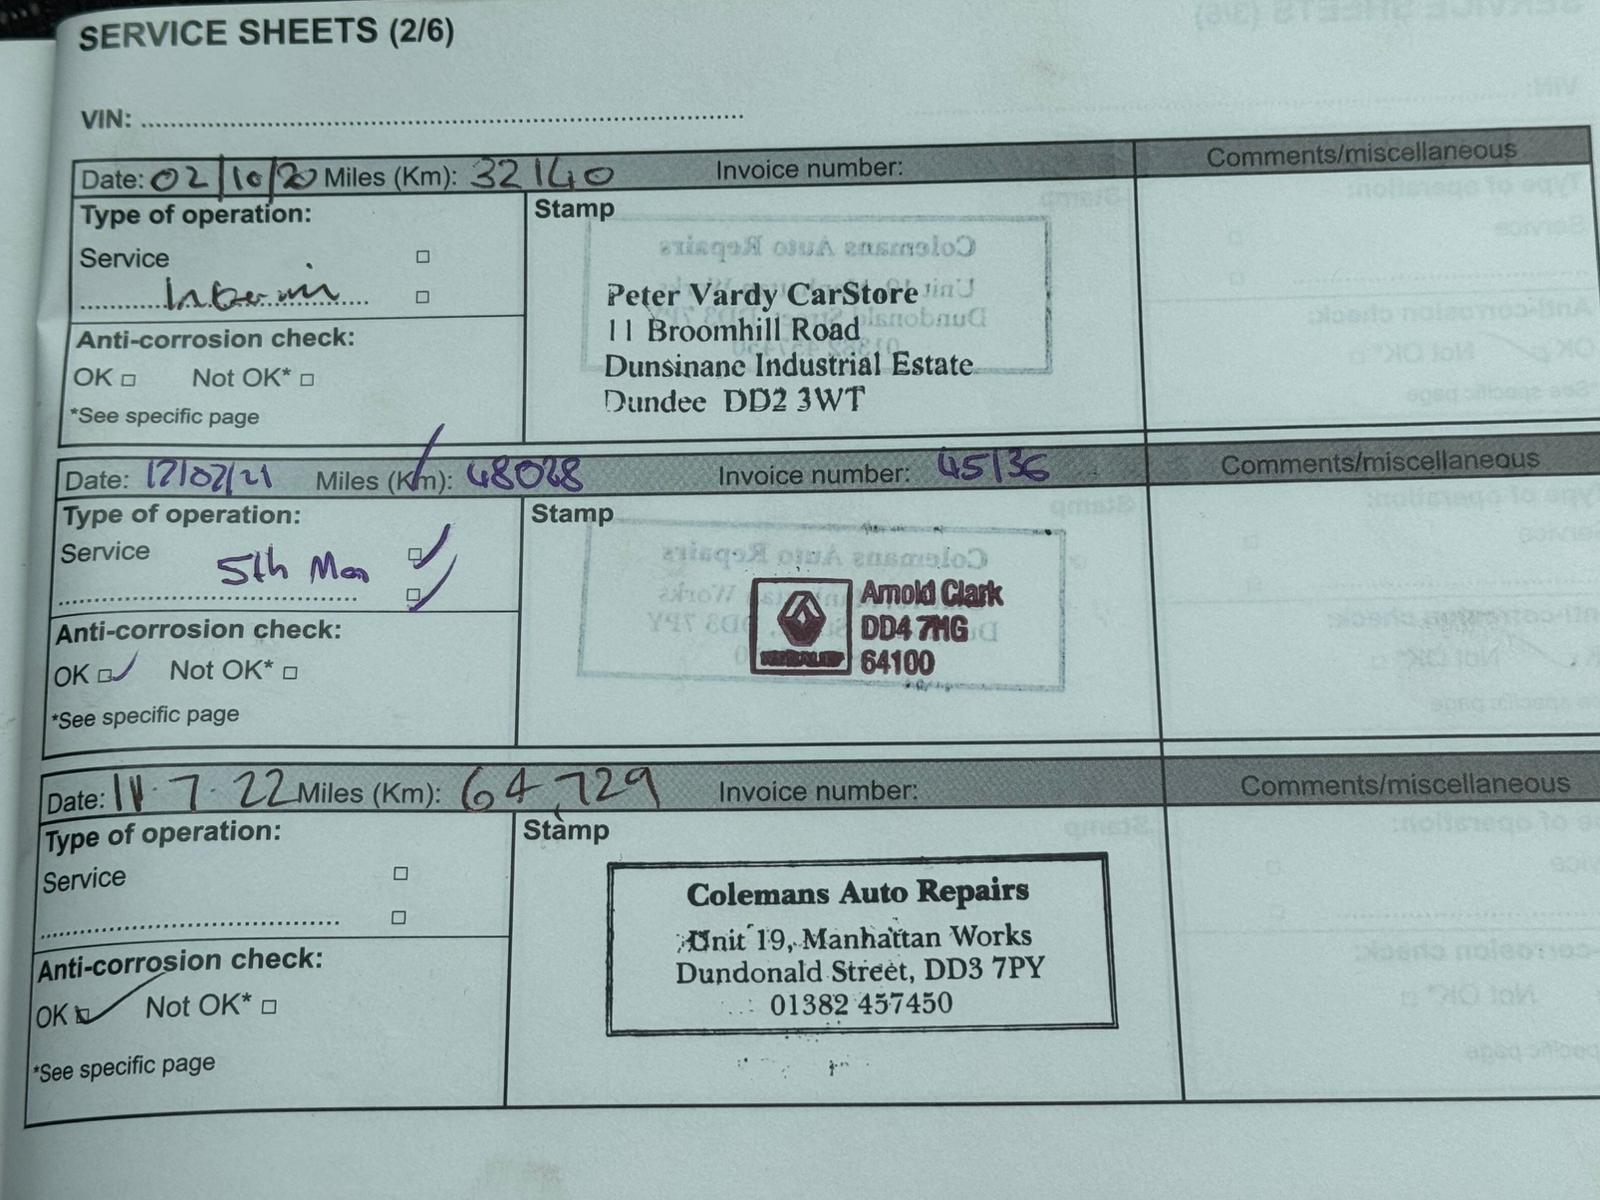 SERVICE SHEETS (2/6)
VIN:
Date: 02/10/20 Miles (Km): 32140 Invoice number: Comments/miscellaneous
Type of operation:
Service
Interim
Anti-corrosion check:
OK Not OK*
*See specific page
Stamp
Peter Vardy CarStore
11 Broomhill Road
Dunsinane Industrial Estate
Dundee DD2 3WT
Date: 12/07/21 Miles (Km): 48028 Invoice number: 45136 Comments/miscellaneous
Type of operation:
Service
5th Man
Anti-corrosion check:
OK Not OK*
*See specific page
Stamp
Arnold Clark
DD4 7HG
64100
Date: 11.7.22 Miles (Km): 64,729 Invoice number: Comments/miscellaneous
Type of operation:
Service
Anti-corrosion check:
OK Not OK*
*See specific page
Stamp
Colemans Auto Repairs
Unit 19, Manhattan Works
Dundonald Street, DD3 7PY
01382 457450